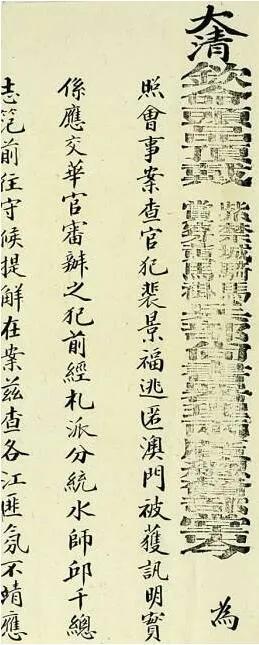 大清欽命頭品頂戴紫禁城騎馬賞穿黃馬褂兵部尚書署理兩廣總督部堂岑 為
照會事案查官犯裴景福逃匿澳門被獲訊明實
係應交華官審辦之犯前經札派分統水師邱千總
志范前往守候提解在案茲查各江匪氛不靖應